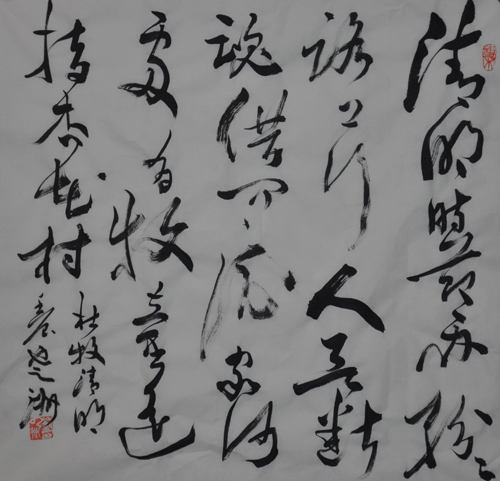 清明時節雨紛々
路上行人欲斷
魂借问酒家何
處有牧童遥
指杏花村
杜牧清明